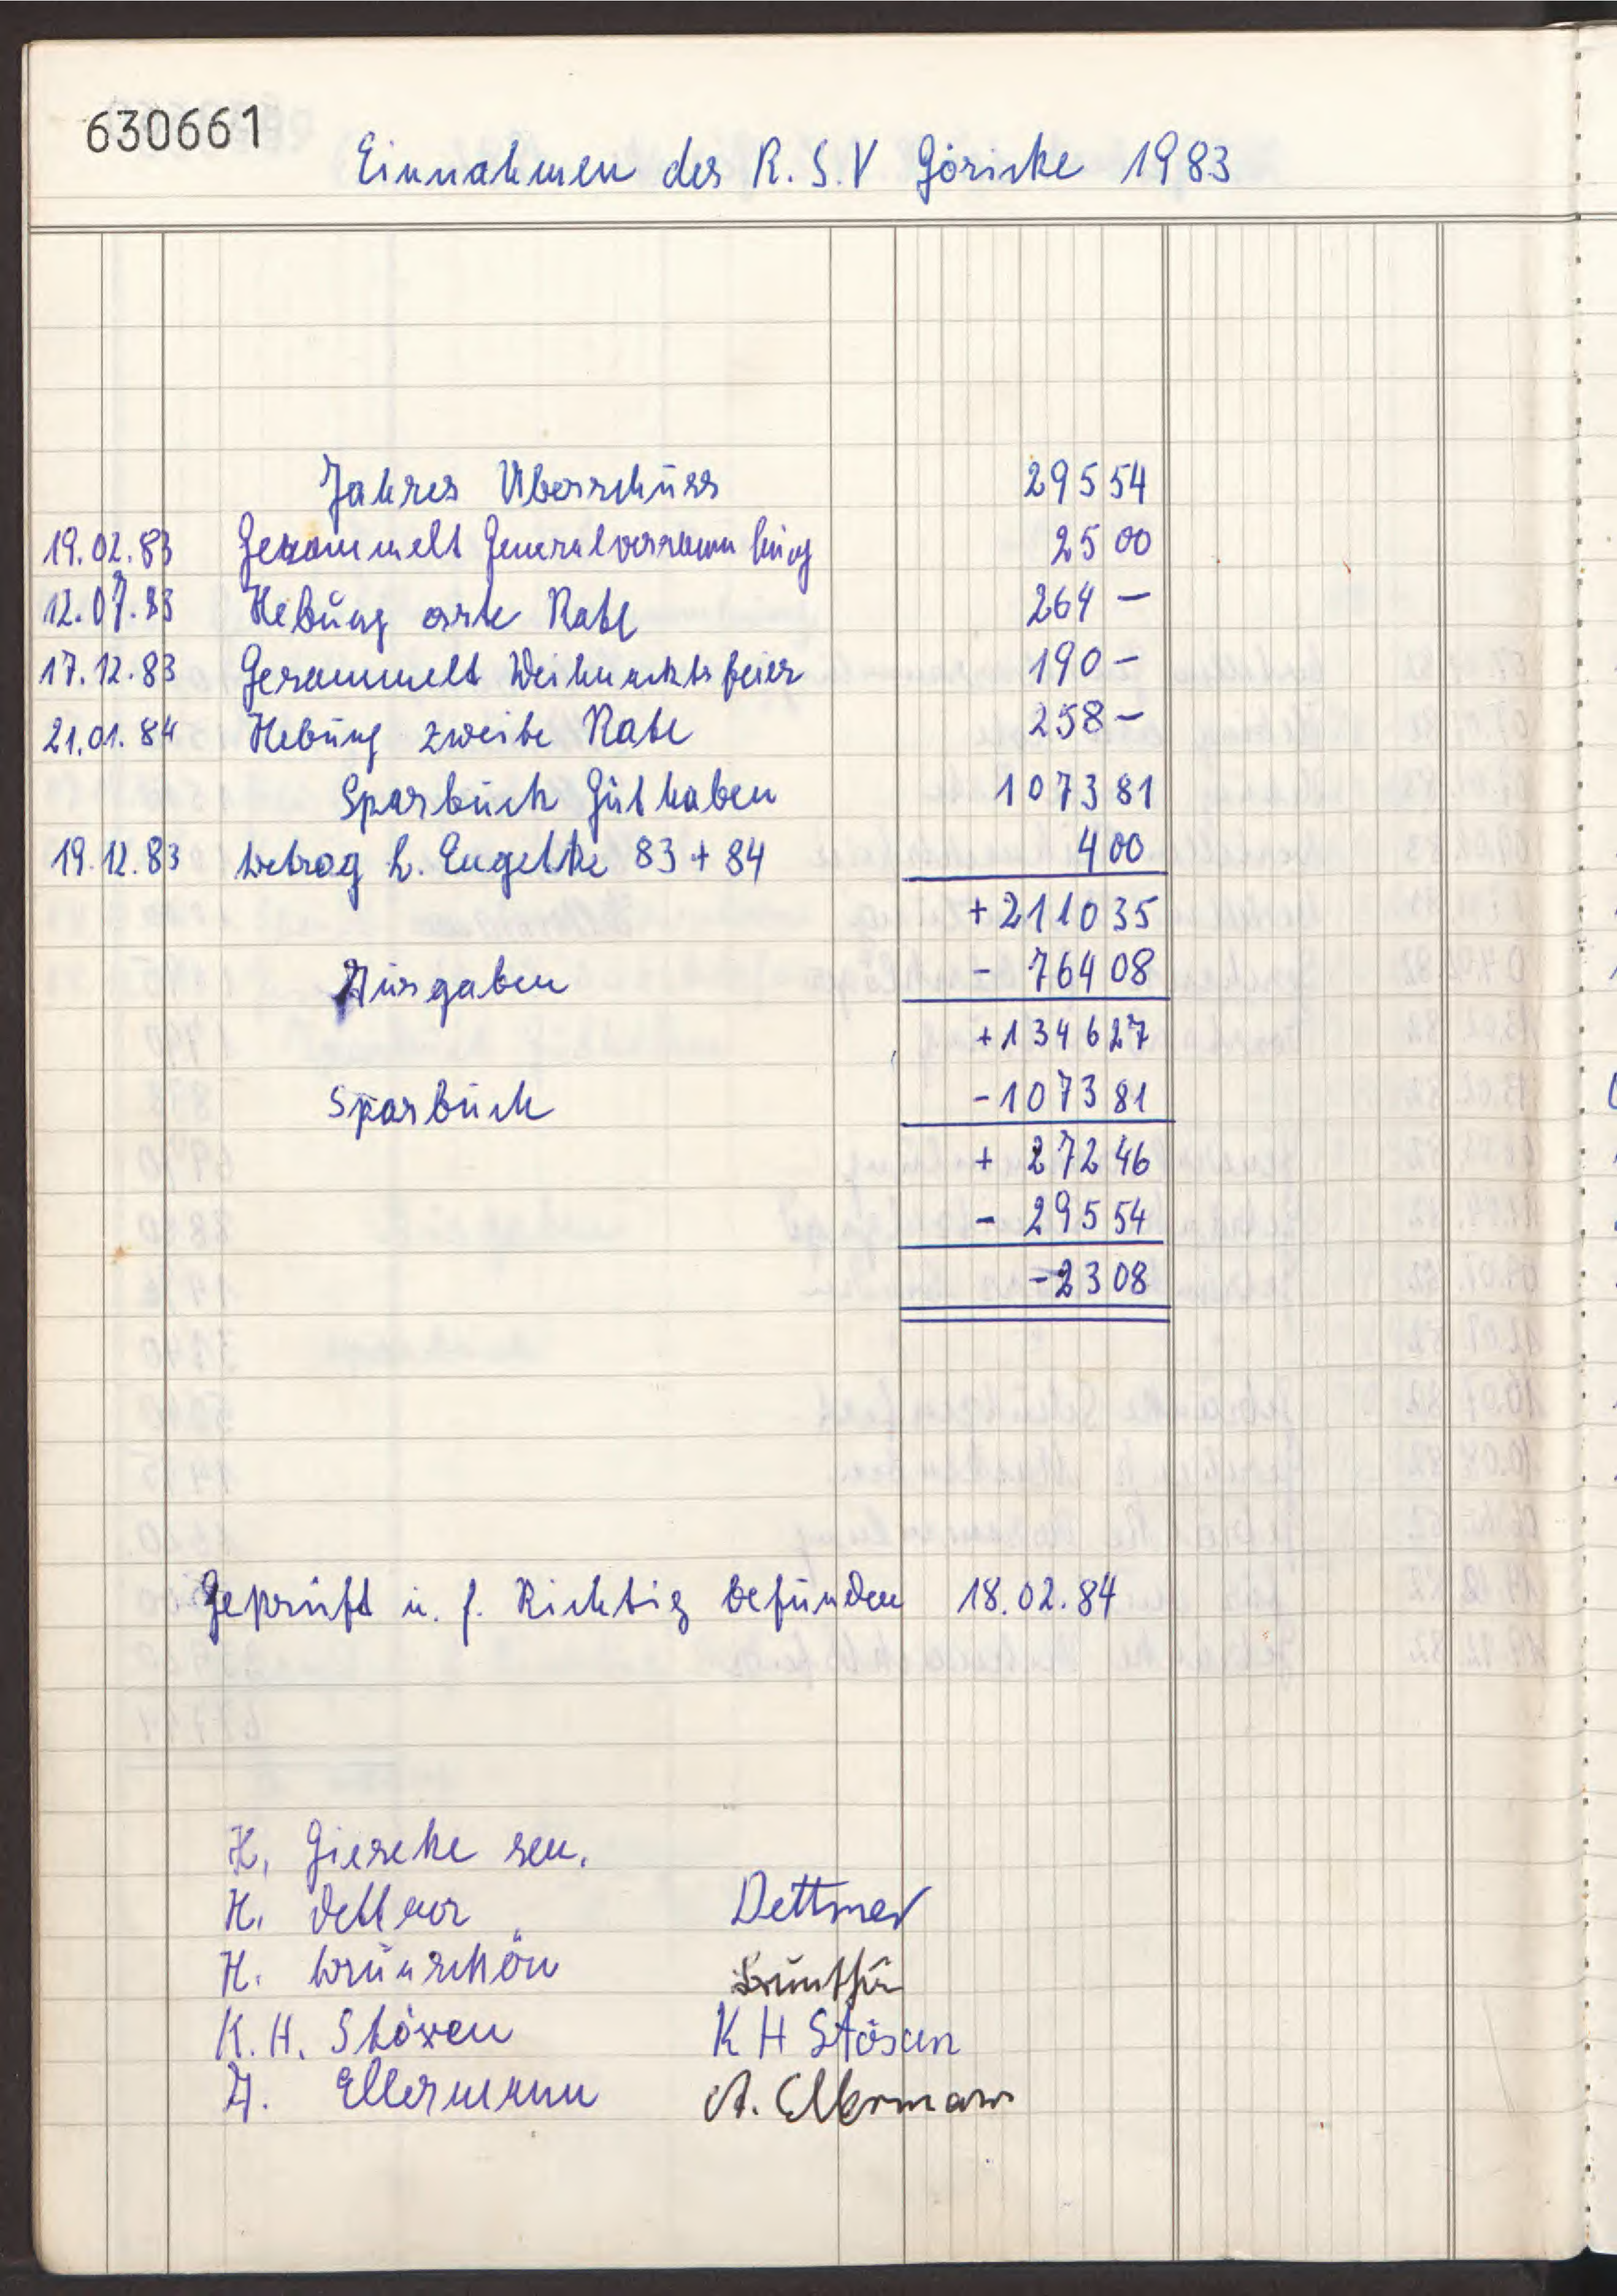 630661
Einnahmen des R. S. V Göricke 1983
Jahres Überschuss 295 54
19.02.83 Gesammelt Generalversammlung 25 00
12.07.83 Hebung erste Rate 264 —
17.12.83 Gesammelt Weihnachtsfeier 190 —
21.01.84 Hebung zweite Rate 258 —
Sparbuch Guthaben 1073 81
19.12.83 Betrag h. Engelke 83 + 84 4 00
+ 2110 35
Ausgaben - 764 08
+ 1346 27
Sparbuch - 1073 81
+ 272 46
- 295 54
- 23 08
Geprüft u. f. Richtig befunden 18.02.84
H. Gieseke sen.
H. Dettmer Dettmer
H. Brünschön
K. H. Stösen K H Stösen
A. Ellermann A. Ellermann